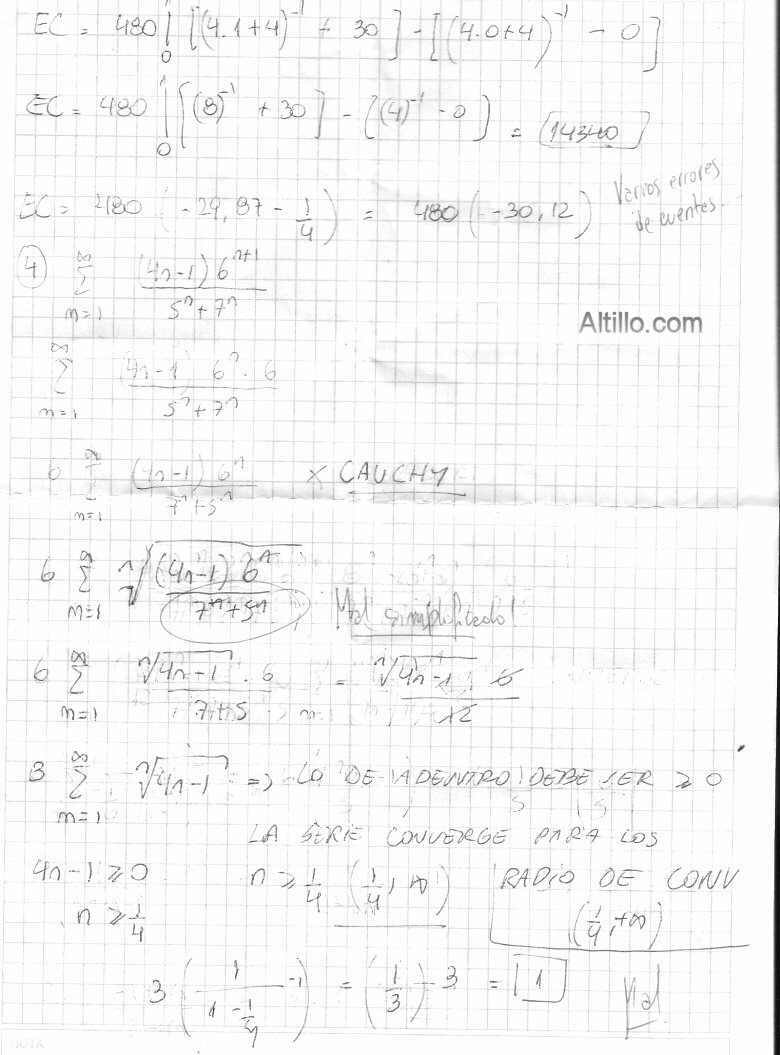 EC = 480 | [(4.1+4)^-1 + 30] - [(4.0+4)^-1 - 0]
0
EC = 480 | [(8)^-1 + 30] - [(4)^-1 - 0] = [14340]
0
EC = 480 (-29,87 - 1/4) = 480 (-30,12)
Varios errores
de cuentas.
4 ∞ Σ n=1 (4n-1) 6^n+1 / 5^n + 7^n
Altillo.com
∞ Σ n=1 (4n-1) 6^n . 6 / 5^n + 7^n
6 ∞ Σ n=1 (4n-1) 6^n / 7^n + 5^n x CAUCHY
6 ∞ Σ n=1 n√ (4n-1) 6^n / 7^n + 5^n Mal simplificado!
6 ∞ Σ n=1 n√4n-1 . 6 / 7+5 = n√4n-1 6 / 12
3 ∞ Σ n=1 n√4n-1 => LO DE ADENTRO DEBE SER ≥ 0
LA SERIE CONVERGE PARA LOS
4n-1 ≥ 0 n ≥ 1/4 (1/4, ∞) RADIO DE CONV
n ≥ 1/4 (1/4, +∞)
3 ( 1 / 1 - 1/4 -1) = (1/3) 3 = 1 Mal